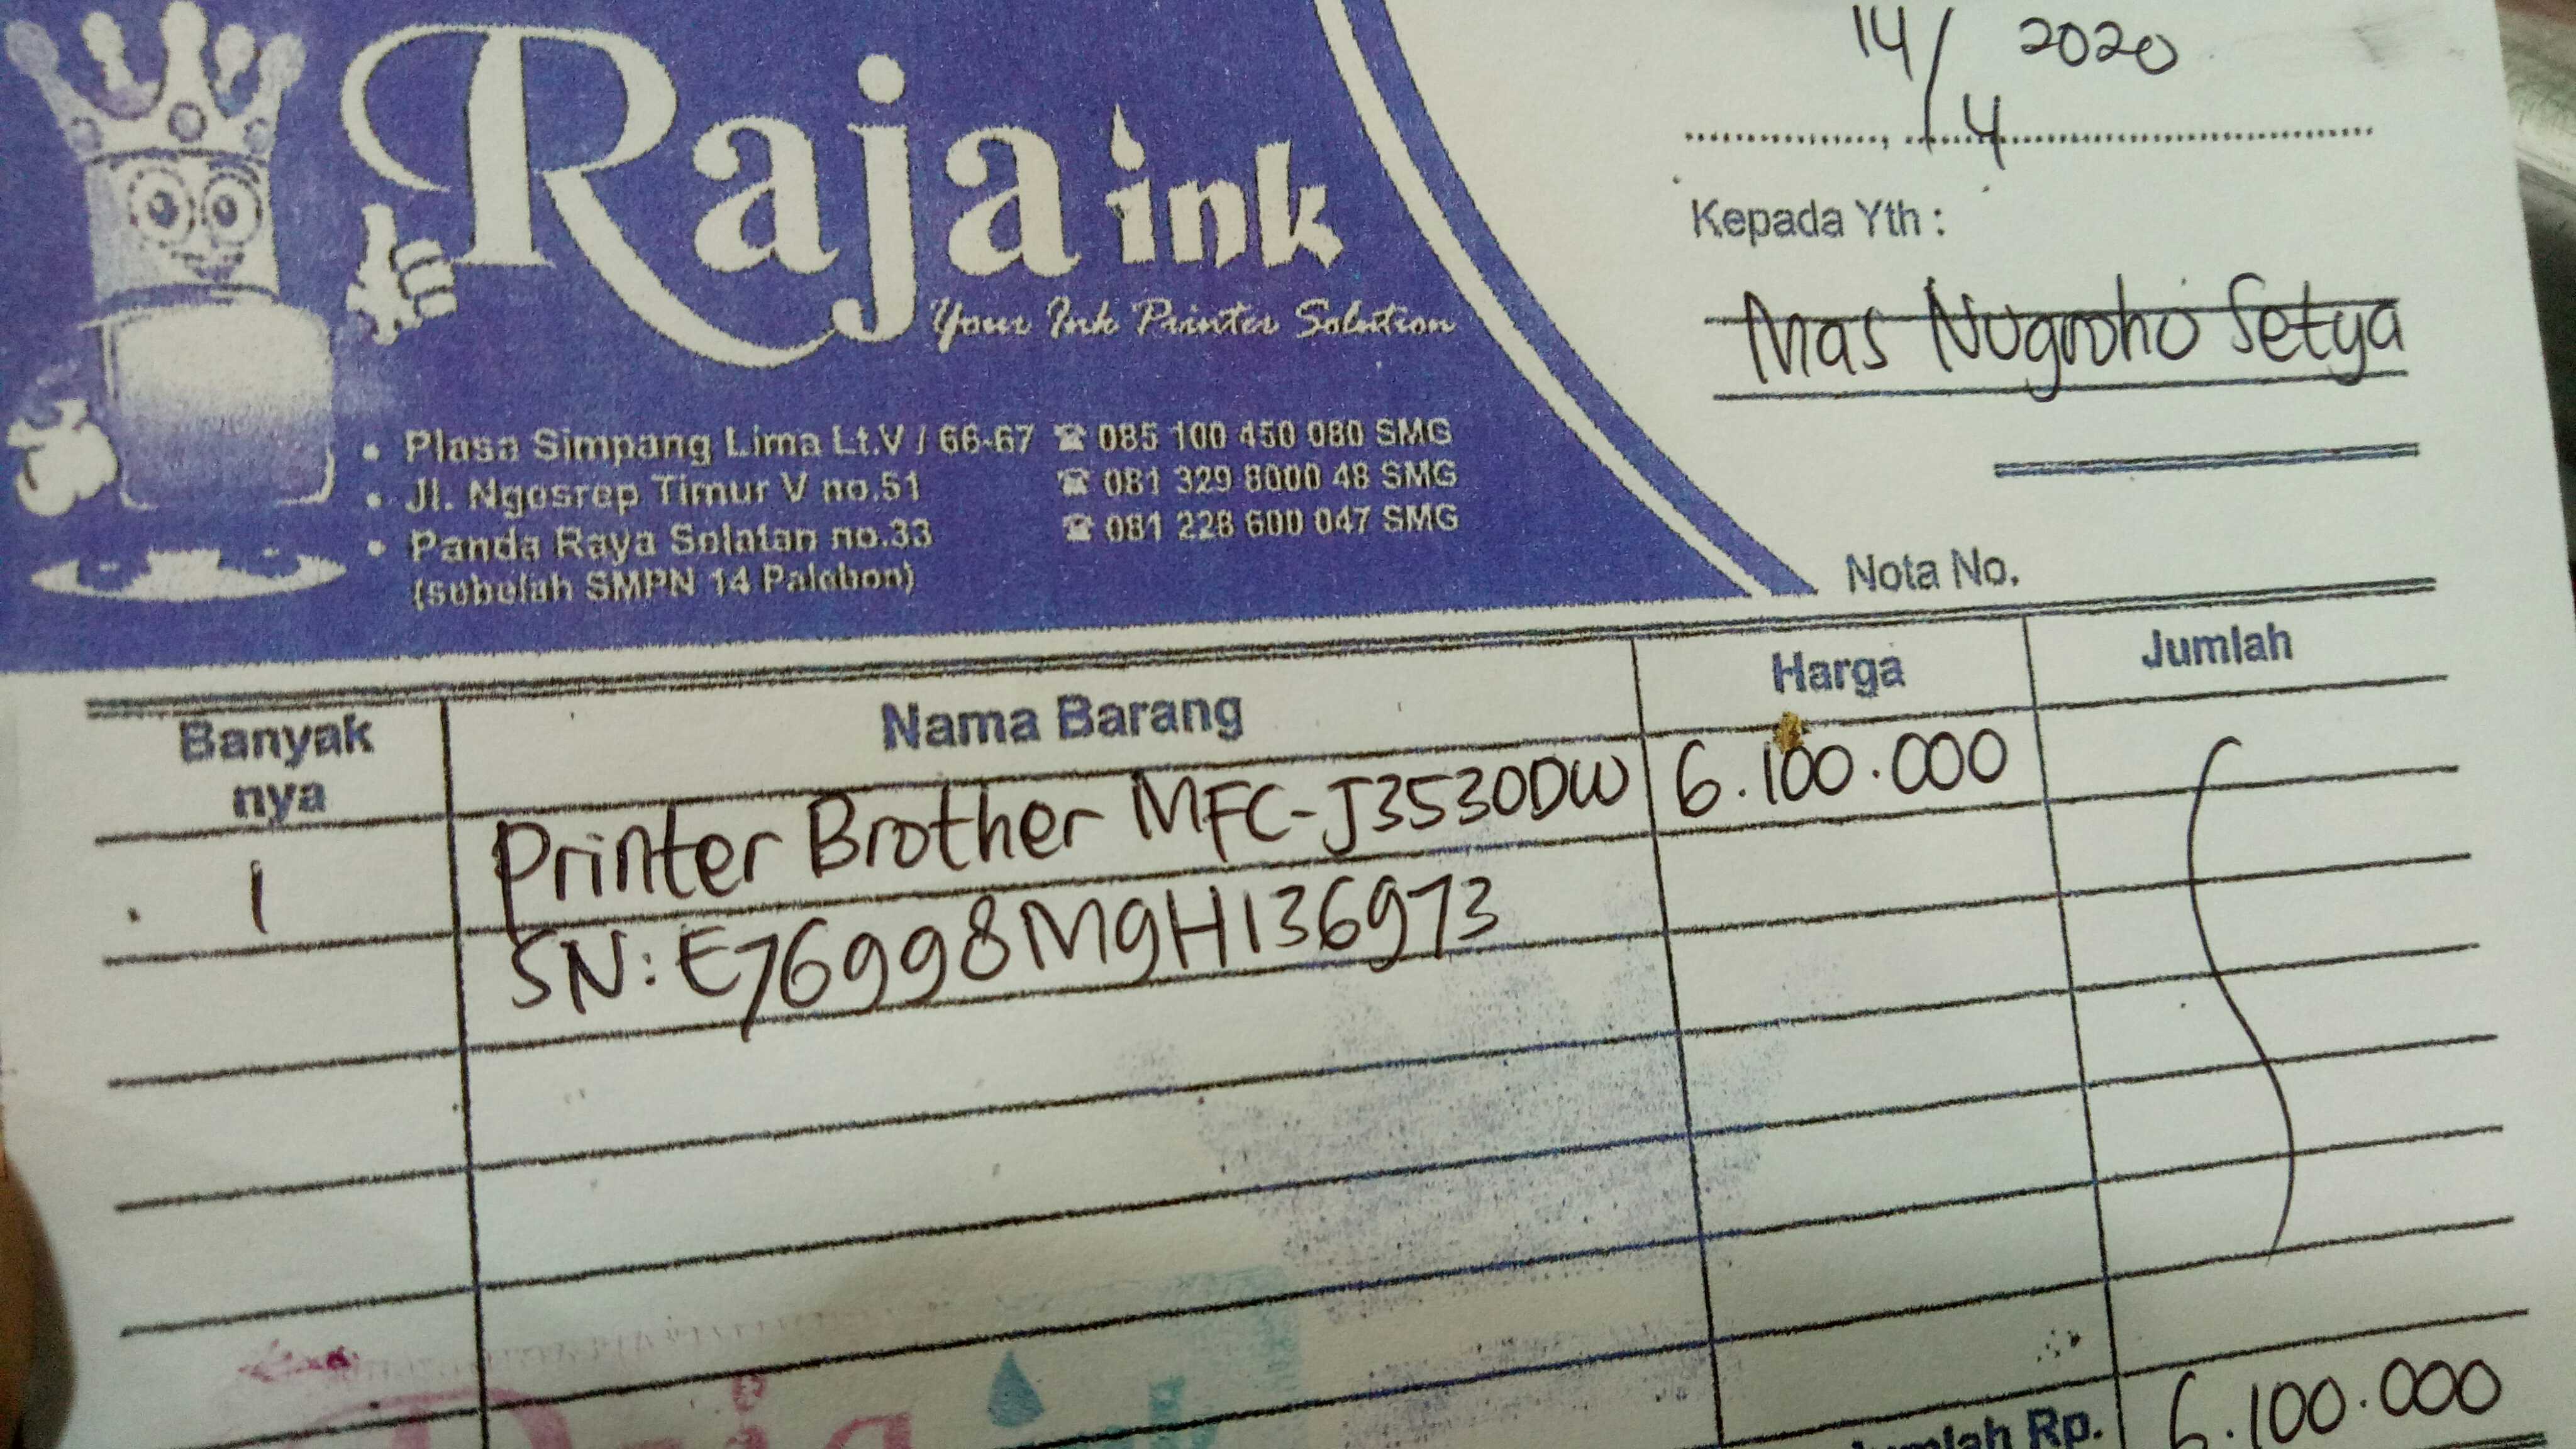 Raja ink
Your Ink Printer Solution
• Plasa Simpang Lima Lt.V / 66-67 ☎ 085 100 450 080 SMG
• Jl. Ngesrep Timur V no.51 ☎ 081 329 8000 48 SMG
• Panda Raya Selatan no.33 ☎ 081 228 600 047 SMG
(sebelah SMPN 14 Palebon)
14/4 2020
Kepada Yth :
Mas Nugroho Setya
Nota No.
Banyak nya Nama Barang Harga Jumlah
1 Printer Brother MFC-J3530DW 6.100.000
SN: E76998M9H136973
Jumlah Rp. 6.100.000
Raja